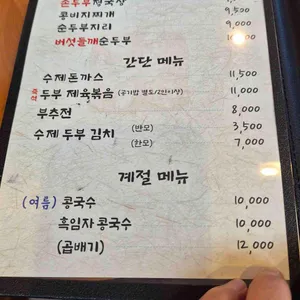 손두부청국장
콩비지찌개 9,500
순두부지리 9,000
버섯들깨순두부
간단 메뉴
수제돈까스 11,500
두부 제육볶음 (공기밥 별도/2인이상) 11,000
부추전 8,000
수제 두부 김치 (반모) 3,500
(한모) 7,000
계절 메뉴
(여름) 콩국수 10,000
흑임자 콩국수 10,000
(곱배기) 12,000